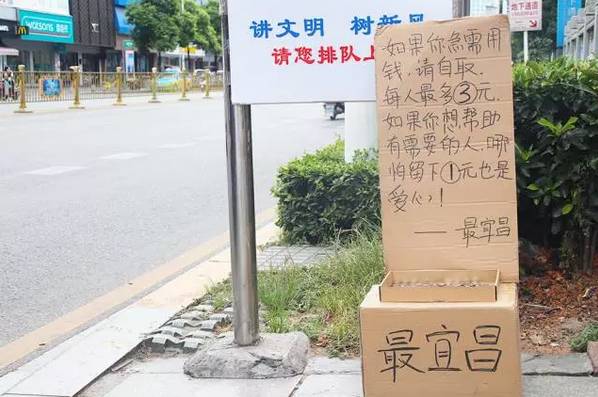 watsons
讲文明 树新风
请您排队上
地下通道
如果你急需用
钱,请自取.
每人最多③元.
如果你想帮助
有需要的人,哪
怕留下①元也是
爱心!
——最宜昌
最宜昌